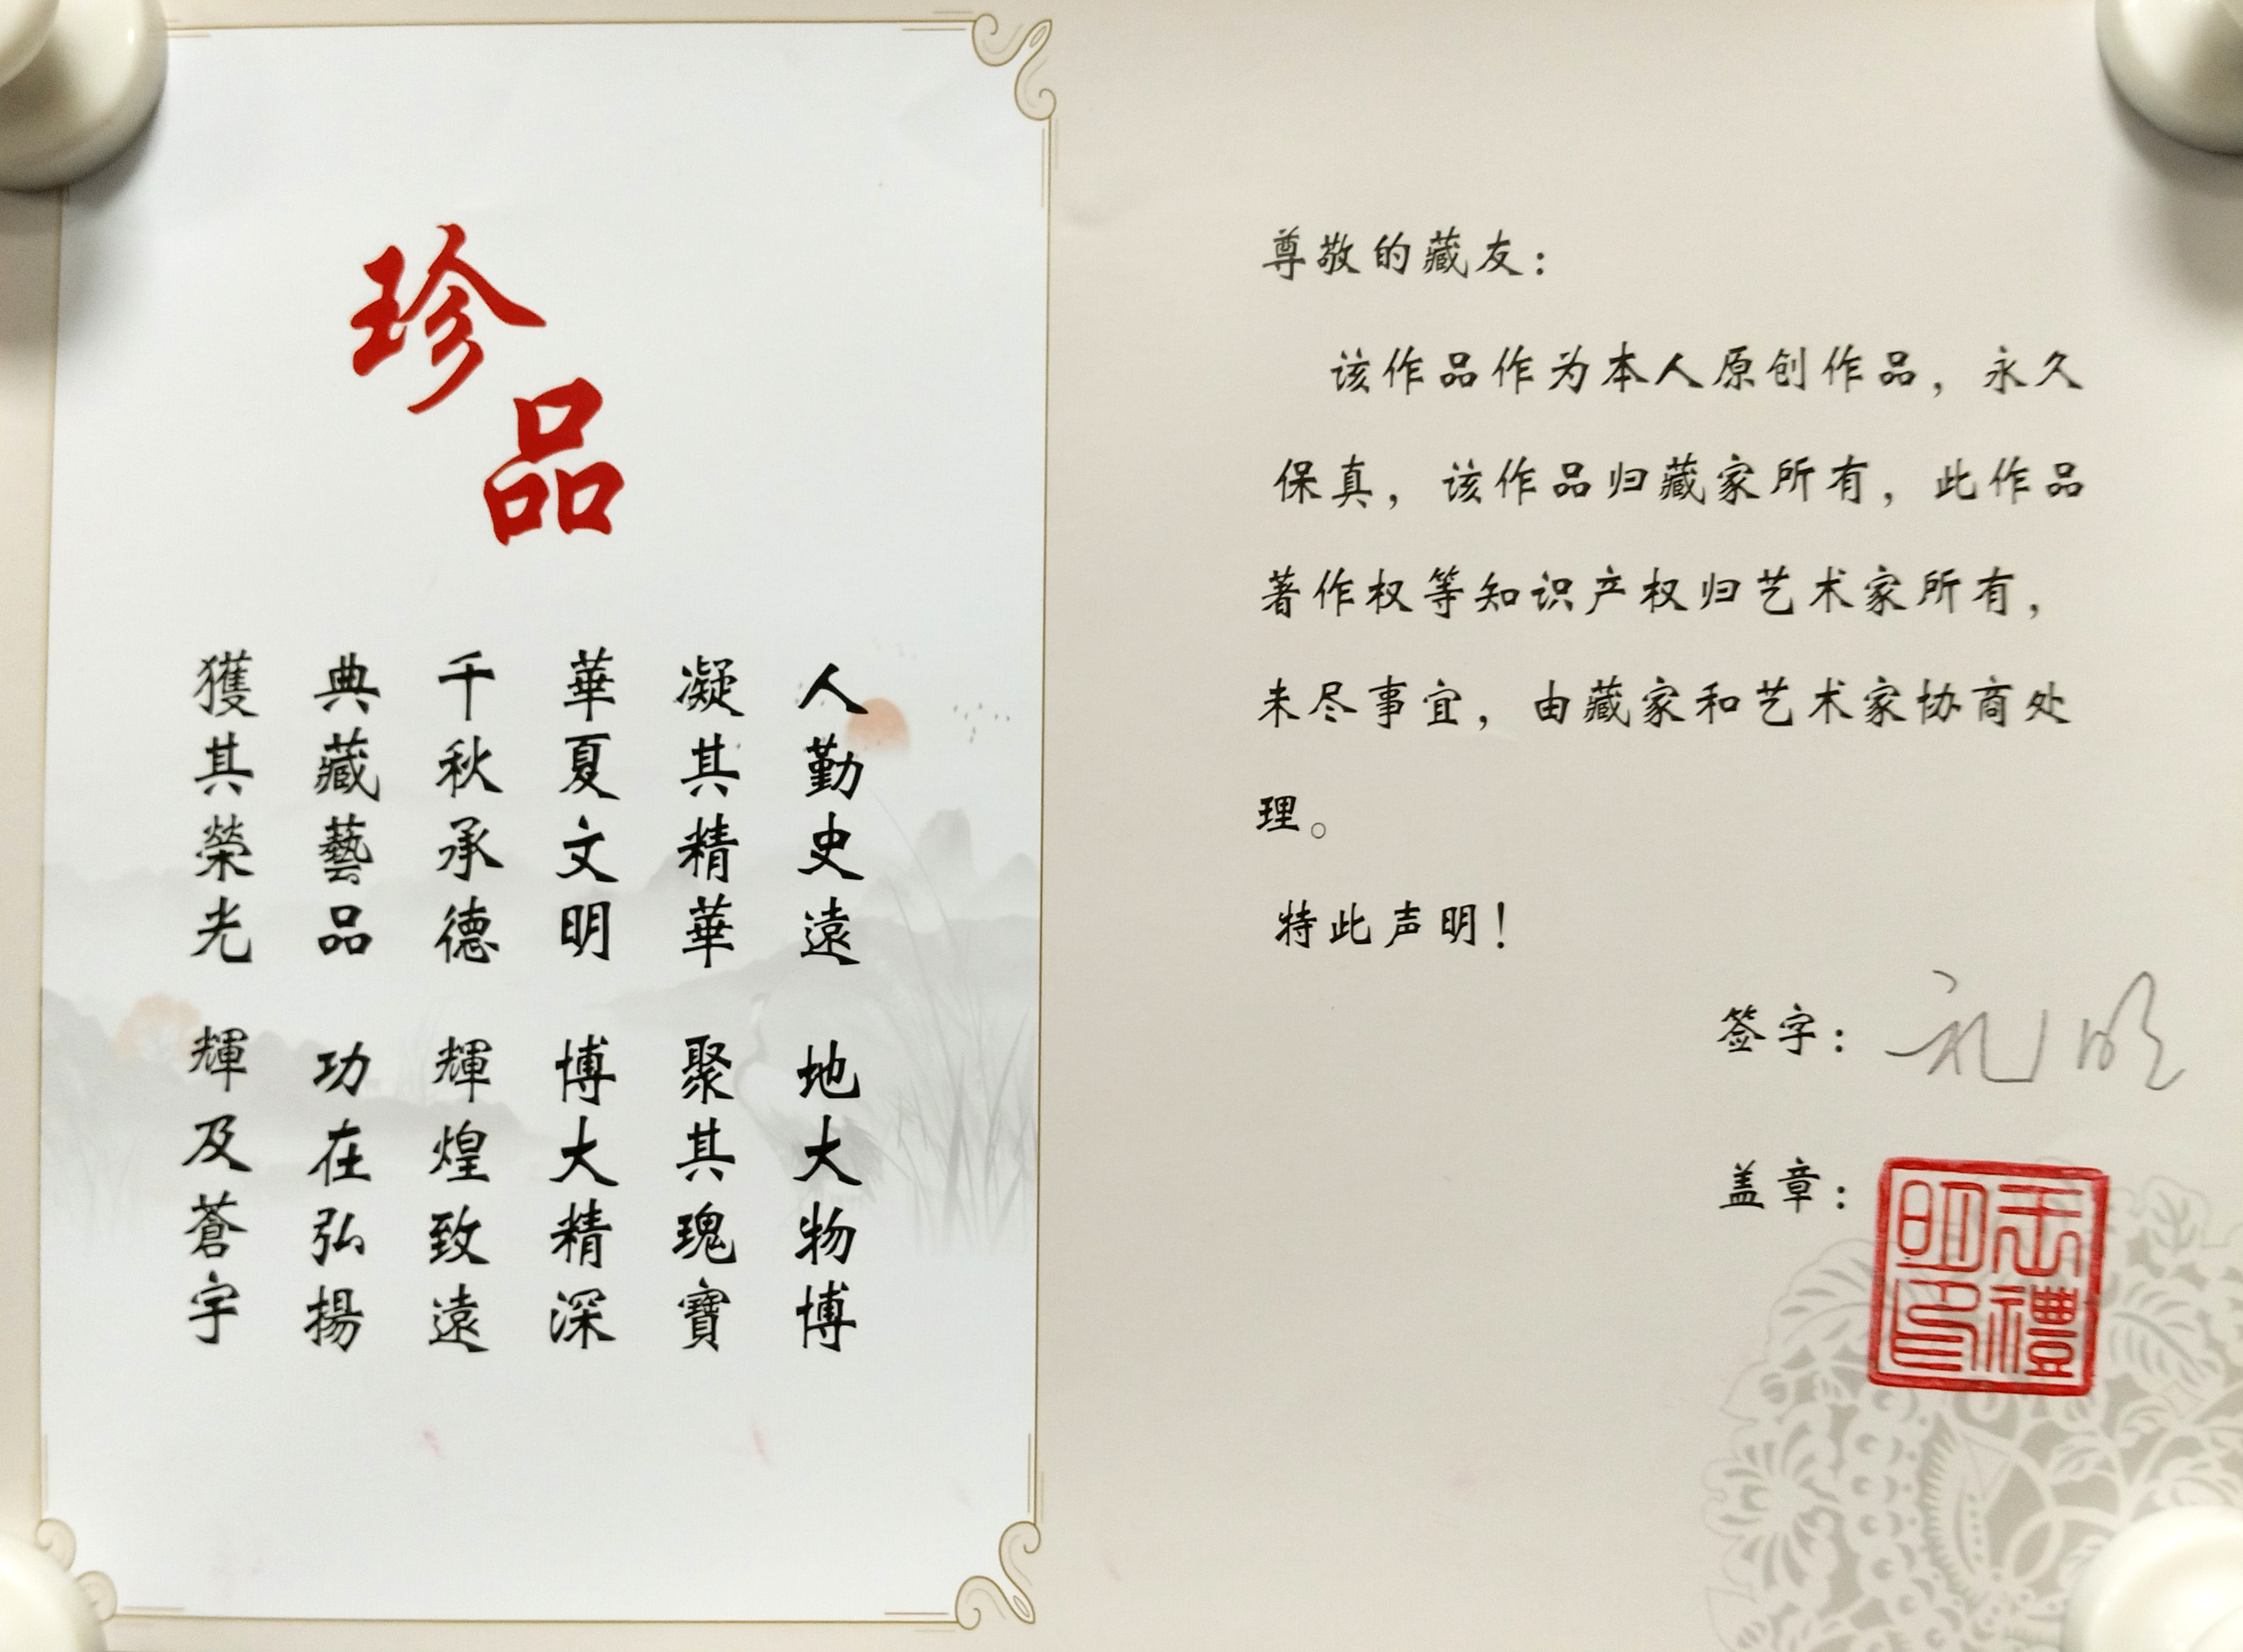 珍品
人勤史遠 地大物博
凝其精華 聚其瑰寶
華夏文明 博大精深
千秋承德 輝煌致遠
典藏藝品 功在弘揚
獲其榮光 輝及蒼宇
尊敬的藏友：
该作品作为本人原创作品，永久
保真，该作品归藏家所有，此作品
著作权等知识产权归艺术家所有，
未尽事宜，由藏家和艺术家协商处
理。
特此声明！
签字：礼明
盖章：